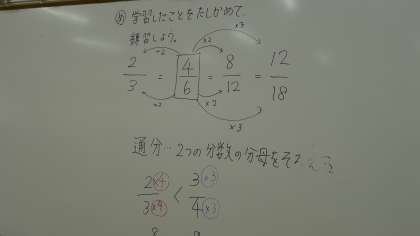 め 学習したことをたしかめて、
練習しよう。
÷2 ×2 ×3
2/3 = 4/6 = 8/12 = 12/18
÷2 ×2 ×3
通分…2つの分数の分母をそろえる
2×4/3×4 < 3×3/4×3
8 9